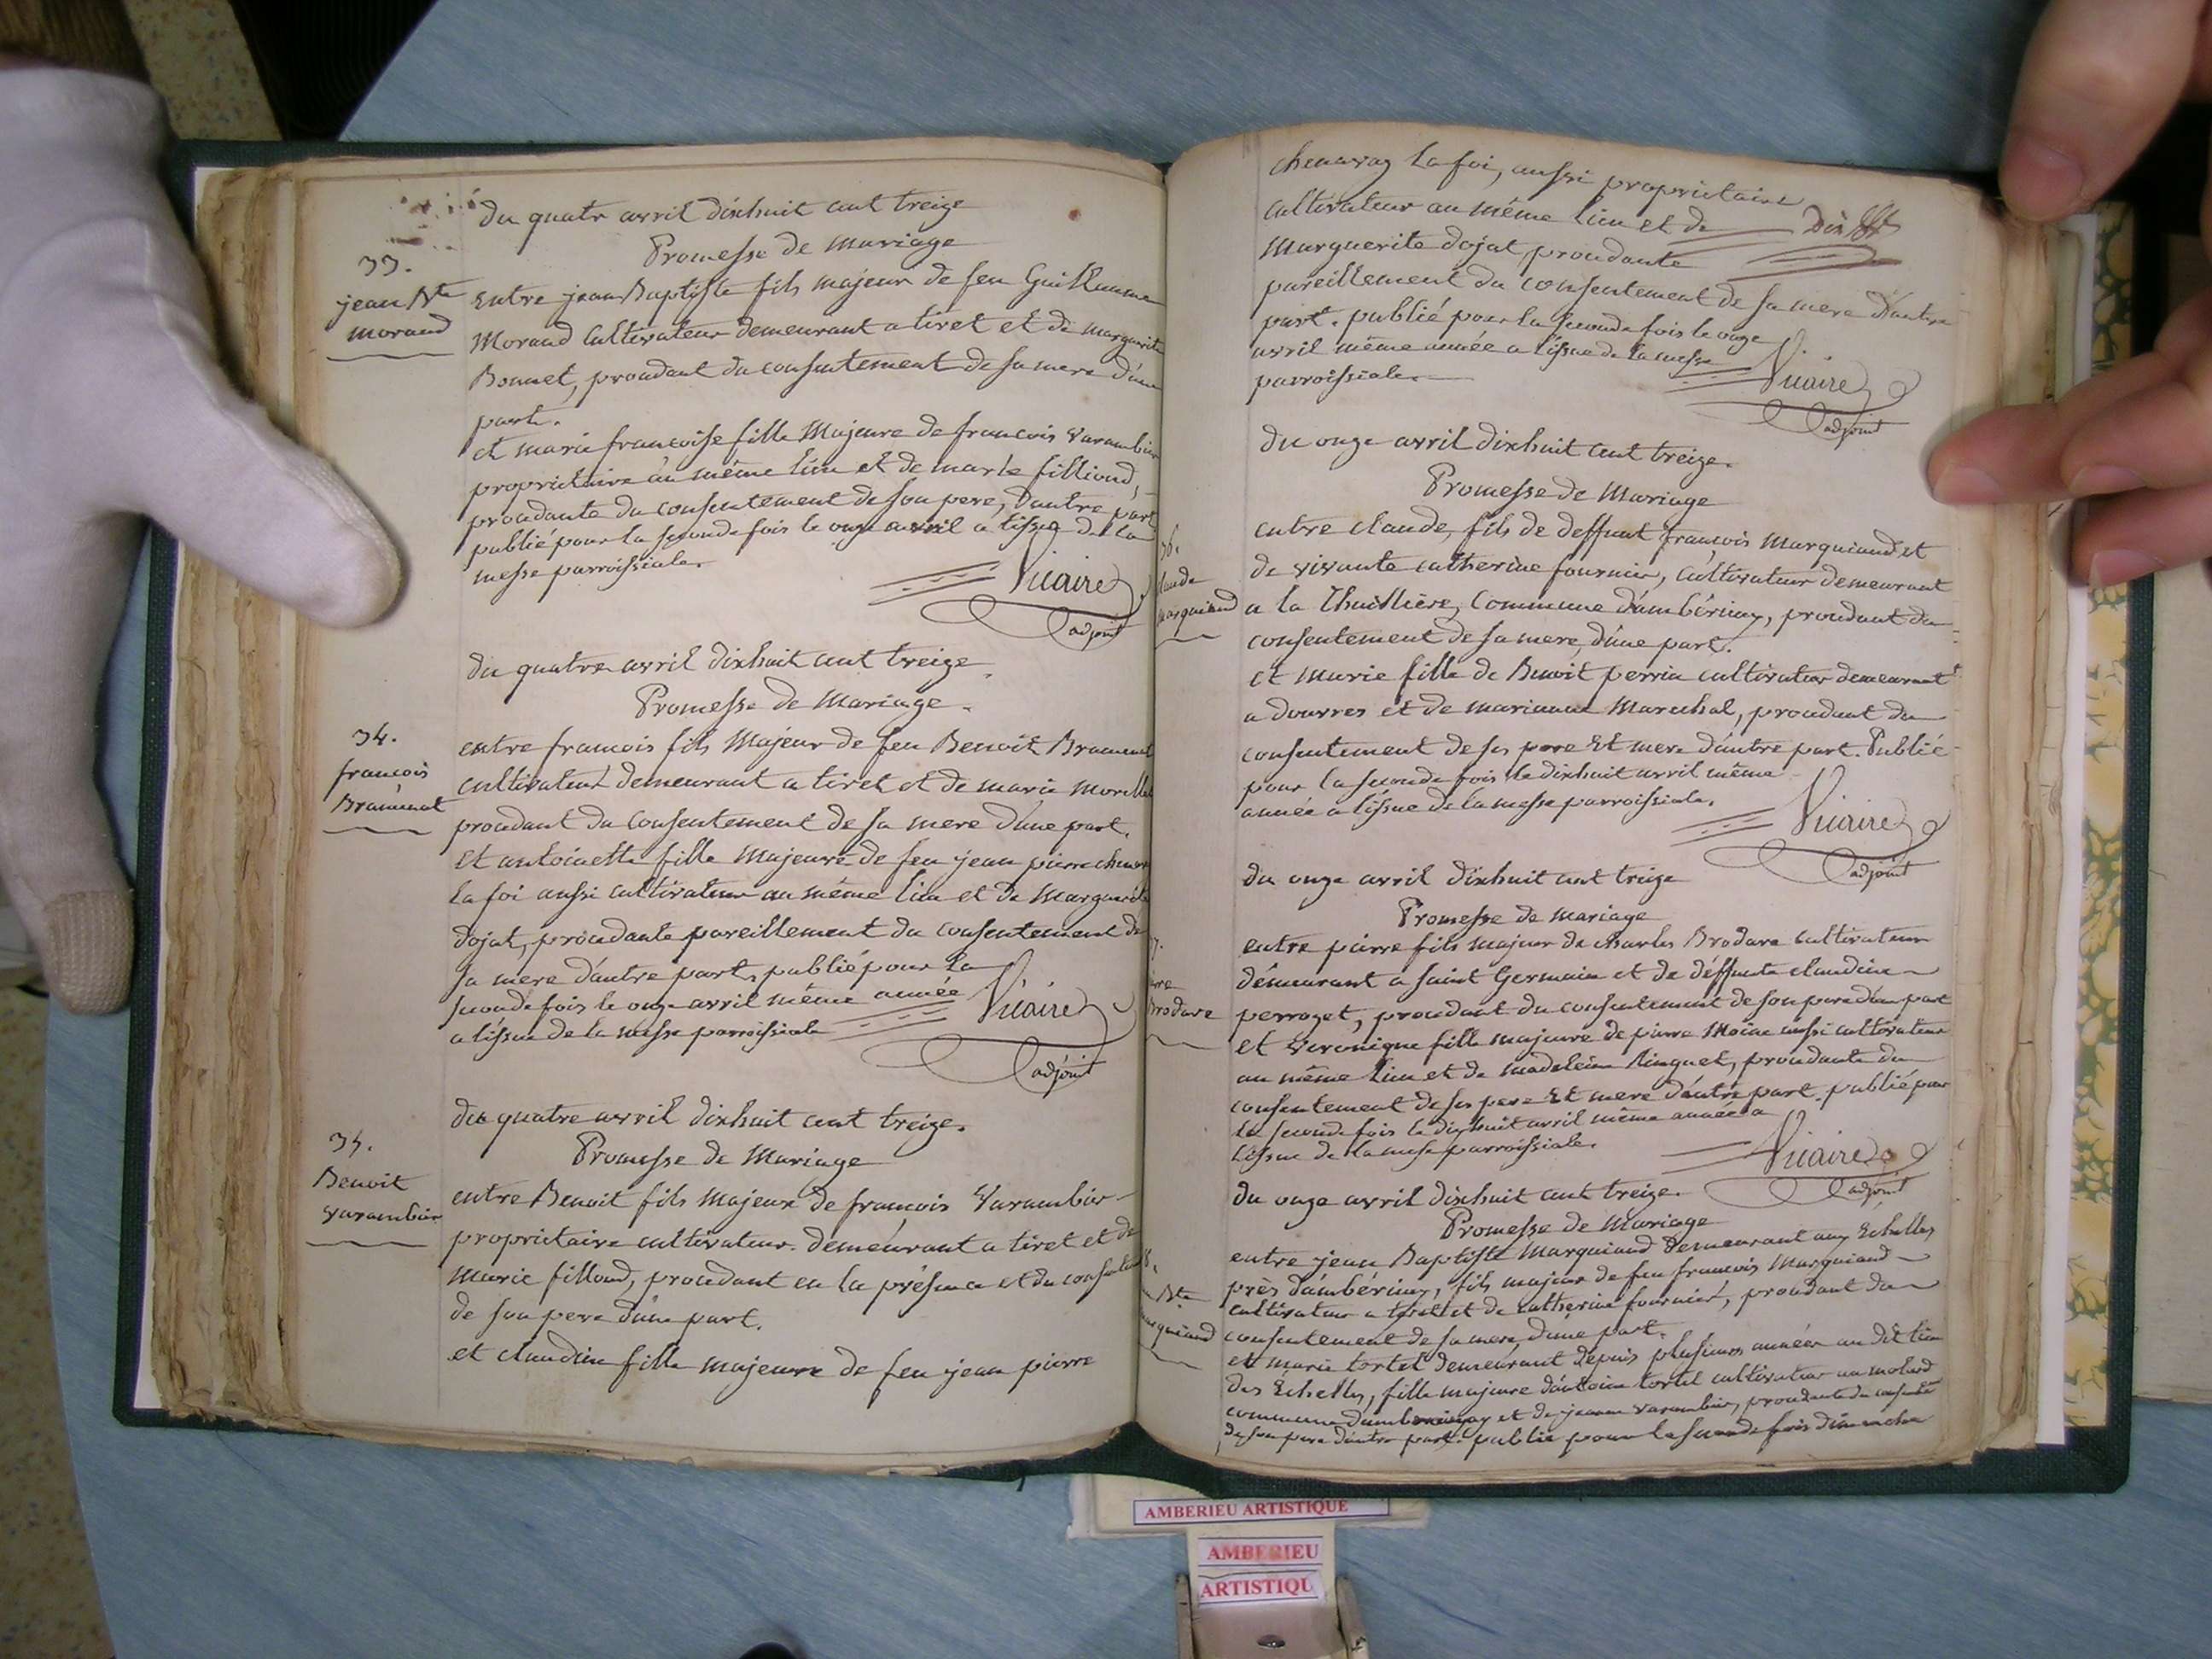 du quatre avril dixhuit cent treize
Promesse de Mariage
33.
jean Bte
morand
Entre jean Baptiste fils majeur de feu Guillaume
Morand Cultivateur demeurant a tiret et de marguerite
Bonnet, procédant du consentement de sa mere d'une
part.
et marie francoise fille Majeure de francois Varambier
propriétaire au même lieu et de marie filliond,
procédante du consentement de son pere, d'autre part
publié pour la seconde fois le onze avril a l'issue de la
messe parroissiale.
Vicaire
adjoint
du quatre avril dixhuit cent treize.
Promesse de Mariage.
34.
francois
Bramenat
entre francois fils Majeur de feu Benoit Bramenat
cultivateur demeurant a tiret et de marie morellet
procédant du consentement de sa mere d'une part.
Et antoinette fille Majeure de feu jean pierre
la foi aussi cultivateur au même lieu et de Marguerite
dojat, procédante pareillement du consentement de
sa mere d'autre part, publié pour la
seconde fois le onze avril même année
a l'issue de la messe parroissiale
Vicaire
adjoint
du quatre avril dixhuit cent treize.
Promesse de Mariage
35.
Benoit
Varambier
entre Benoit fils Majeur de francois Varambier
propriétaire cultivateur demeurant a tiret et de
Marie filloud, procédant en la présence et du
de son pere d'une part.
et claudine fille majeure de feu jean pierre
chenavaz la foi, aussi propriétaire
cultivateur au même lieu et de
Marguerite dojat, procédante
pareillement du consentement de sa mere d'autre
part. publié pour la seconde fois le onze
avril même année a l'issue de la messe
parroissiale.
Vicaire
adjoint
du onze avril dixhuit cent treize.
Promesse de Mariage
36.
claude
marguiand
entre claude, fils de deffunt françois Marguiand et
de vivante catherine fournier, cultivateur demeurant
a la Thuillière, Commune d'ambérieux, procédant du
consentement de sa mere, d'une part.
et Marie fille de Benoit perrin cultivateur demeurant
a douvres et de marianne Marechal, procédant du
consentement de ses pere Et mere d'autre part. Publié
pour la seconde fois le dixhuit avril même
année a l'issue de la messe parroissiale.
Vicaire
adjoint
du onze avril dixhuit cent treize
Promesse de mariage
Brodare
entre pierre fils majeur de charles Brodare cultivateur
démeurant a saint Germain et de déffunte claudine
perrozet, procédant du consentement de son pere d'une part
et Véronique fille majeure de pierre Moine aussi cultivateur
au même lieu et de madeleine Ringuet, procédante du
consentement de ses pere Et mere d'autre part. publié pour
la seconde fois le dixhuit avril même année a
l'issue de la messe parroissiale.
Vicaire
adjoint
du onze avril dixhuit cent treize.
Promesse de Mariage
Bte
marguiand
entre jean Baptiste Marguiand demeurant aux Echelles
près d'ambérieux, fils majeur de feu francois Marguiand
cultivateur a tiret et de catherine fournier, procédant du
consentement de sa mere, d'une part.
et marie tortel demeurant depuis plusieurs années au dit lieu
des Échelles, fille majeure d'antoine tortel cultivateur au molard
commune d'amberieux et de jeanne Varambier, procédante du
de son pere d'autre part. publié pour la seconde fois dimanche
AMBERIEU ARTISTIQUE
AMBERIEU
ARTISTIQU